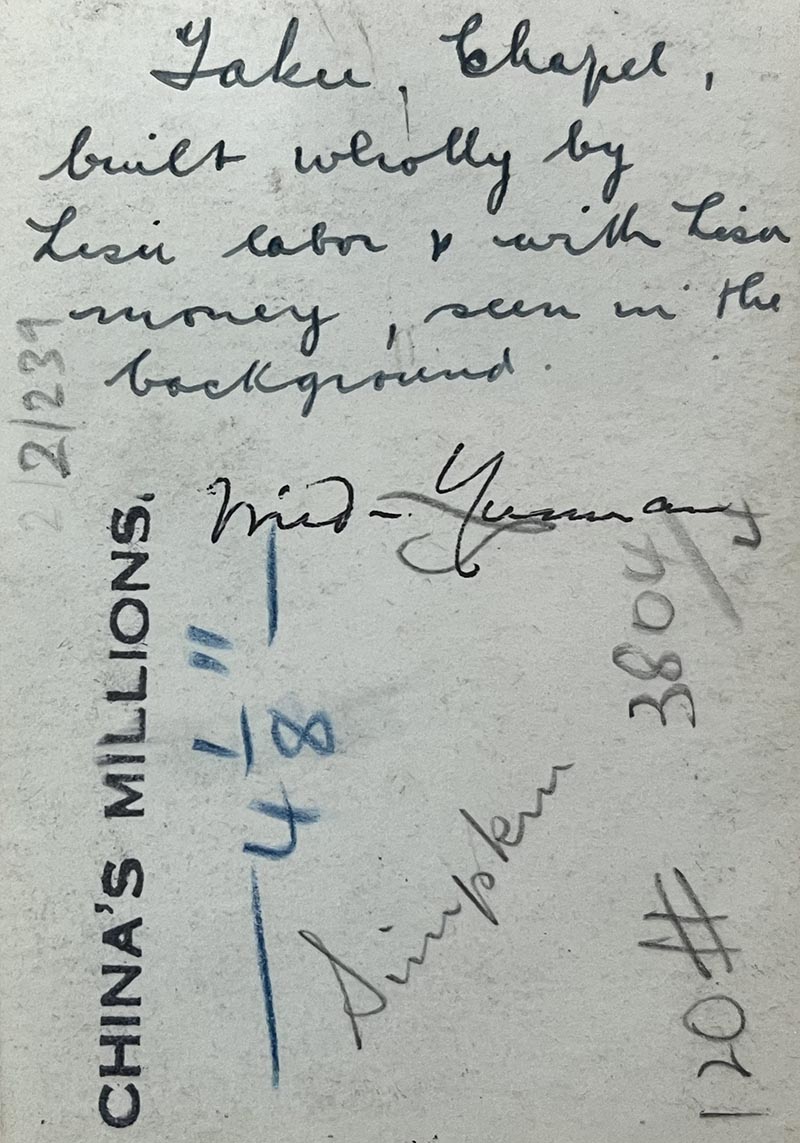 Taku, Chapel,
built wholly by
Lisu labor & with Lisu
money, seen in the
background.
2/2/231
Yunnan
CHINA'S MILLIONS.
4 1/8"
3804/
Simpkin
120 #